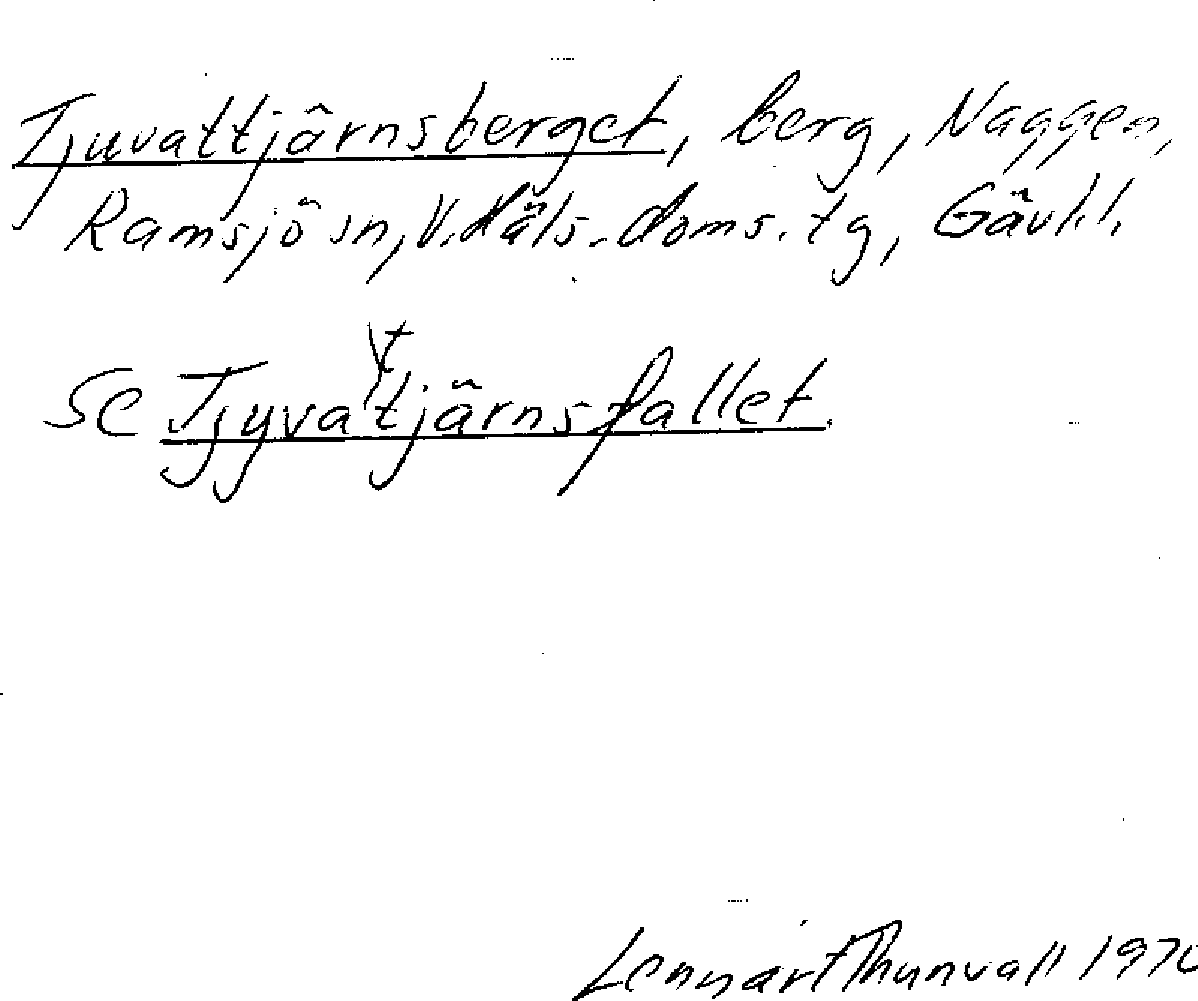 Tjuvattjärnsberget, berg, Naggen,
Ramsjö sn, V. Häls. doms. tg, Gävl.l.
Se Tjyvattjärnsfallet.
Lennart Thunvall 1970